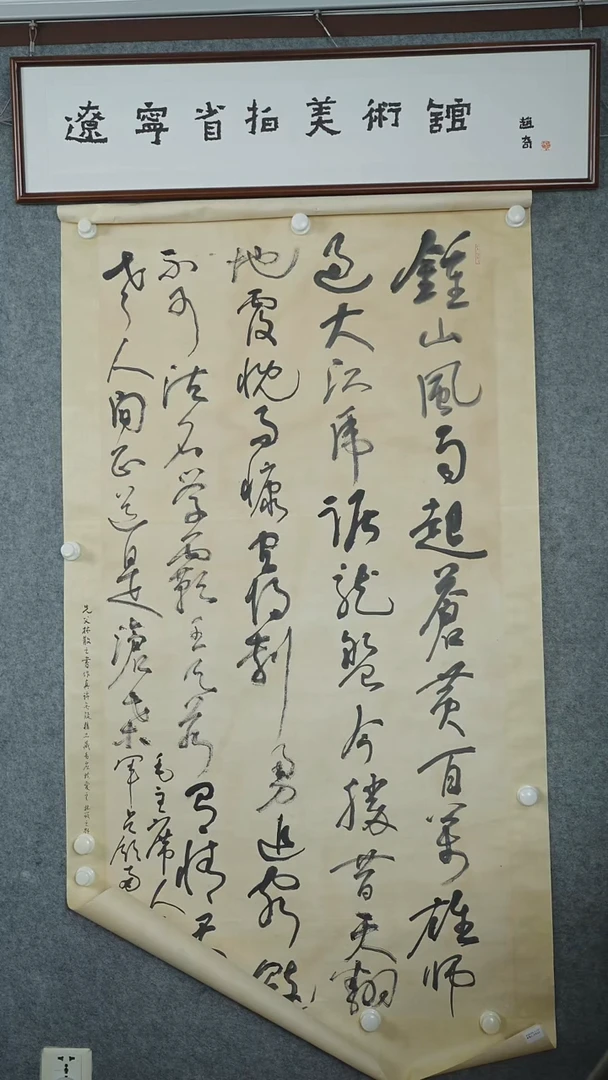 遼寧省拍美術館
趙奇
鍾山風雨起蒼黄百萬雄師
過大江虎踞龍盤今勝昔天翻
地覆慨而慷宜將剩勇追窮寇
不可沽名学霸王天若有情天
老人间正道是滄桑
毛主席人
軍占領南
先父林散之書作真